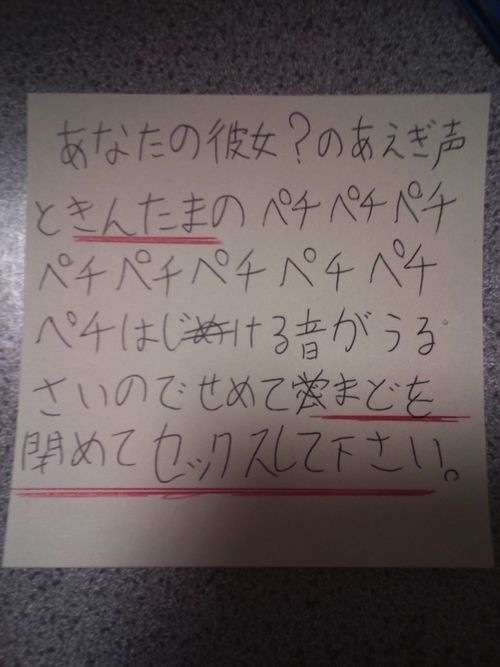 あなたの彼女?のあえぎ声
ときんたまの ペチ ペチ ペチ
ペチ ペチ ペチ ペチ ペチ
ペチはじける音がうる
さいのでせめてまどを
閉めてセックスして下さい。